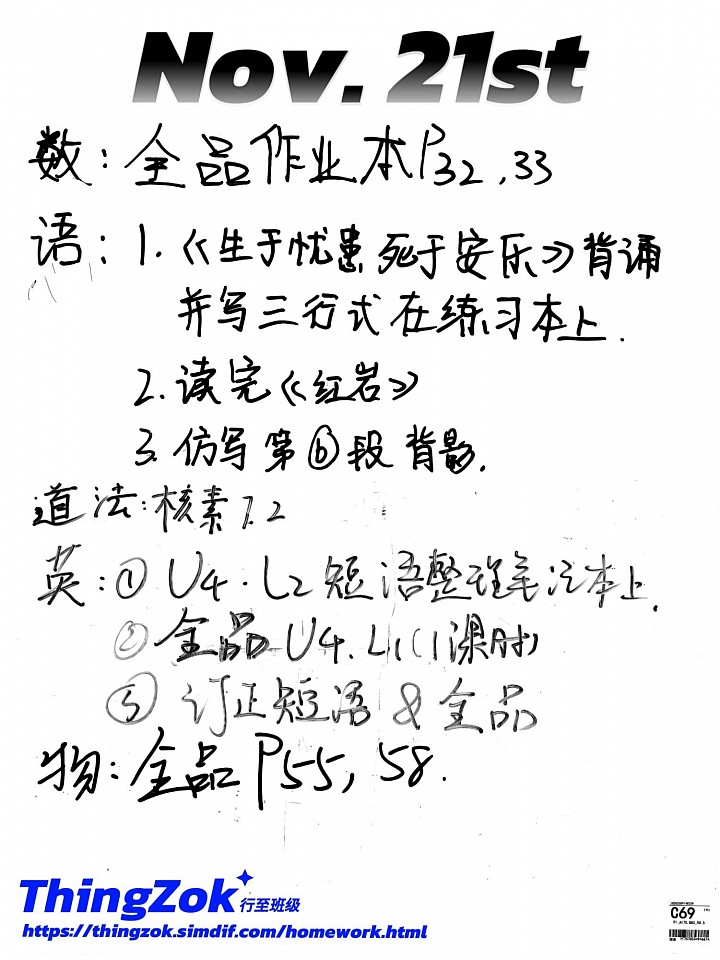 Nov. 21st
数：全品作业本P32，33
语：1.《生于忧患死于安乐》背诵
并写三行式在练习本上.
2.读完《红岩》
3.仿写第⑥段背影.
道法：核素7.2
英：①U4.L2短语整理笔记本上.
②全品U4.L1(1课时)
③订正短语&全品
物：全品P55，58.
ThingZok 行至班级
https://thingzok.simdif.com/homework.html
C69